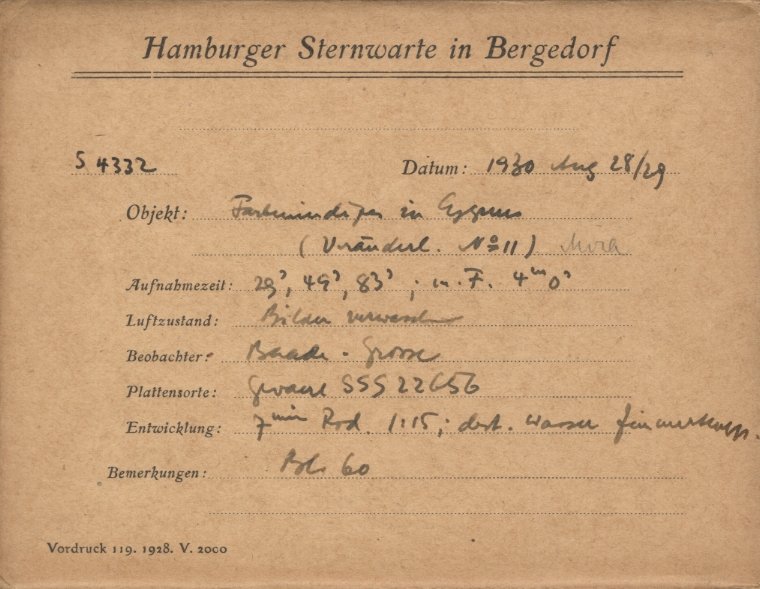 Hamburger Sternwarte in Bergedorf
S 4332
Datum: 1930 Aug 28/29
Objekt: Farbenindizes in Cygnus
(Veränderl. No 11) Mira
Aufnahmezeit: 29s, 49s, 83s; m. F. 4m 0s
Luftzustand: Bilder verwaschen
Beobachter: Baade - Grosse
Plattensorte: Gevaert SSS 22656
Entwicklung: 7min Rod. 1:15; dest. Wasser
Bemerkungen: 60
Vordruck 119. 1928. V. 2000